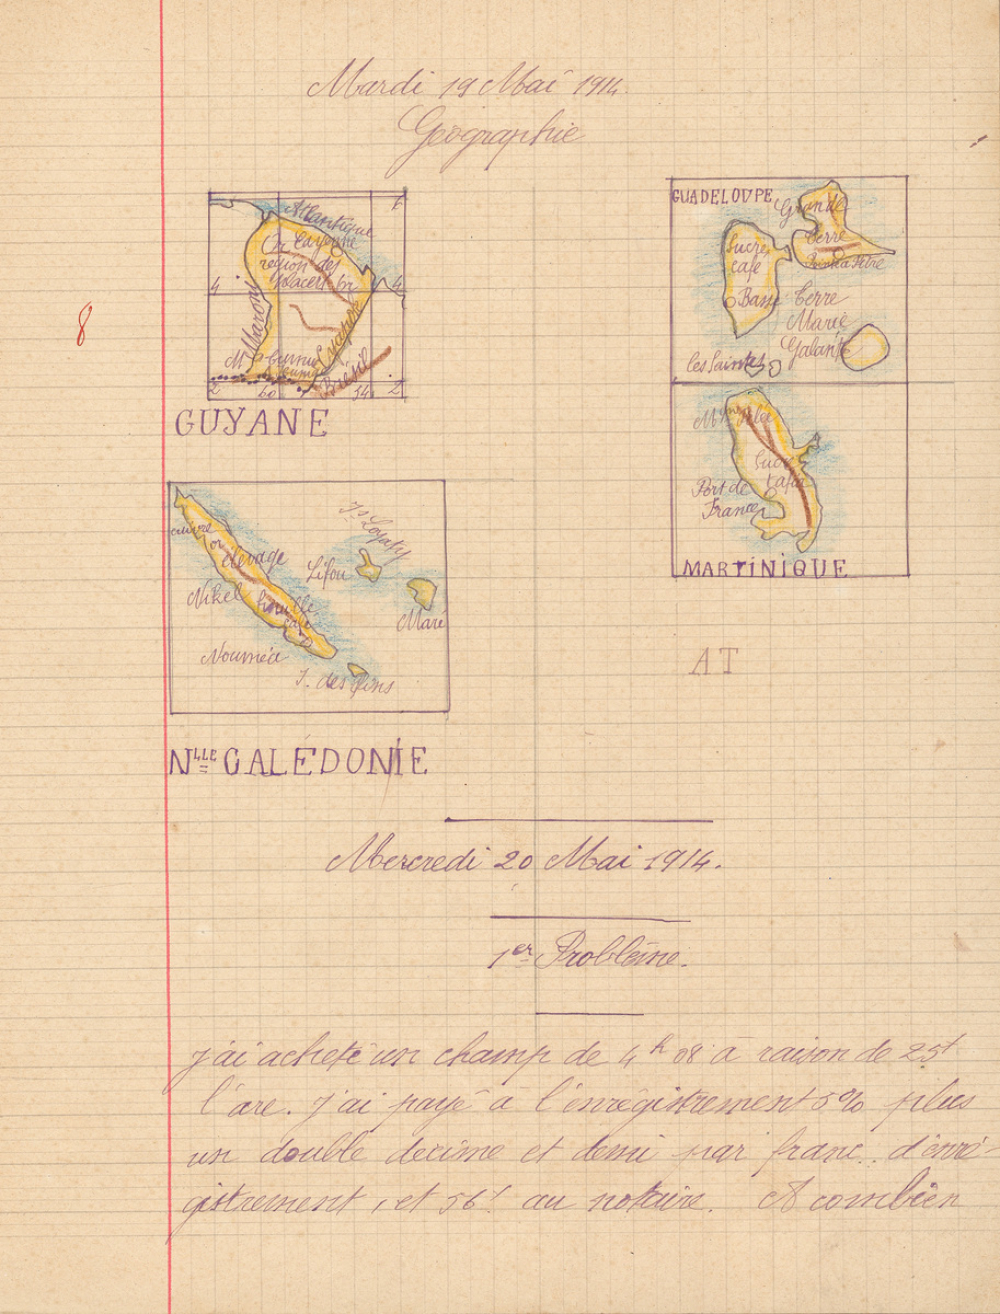 Mardi 19 Mai 1914.
Géographie
8
Atlantique
Or Cayenne
région des
placers
Maroni
Oyapok
Brésil
4
4
2
2
54
GUYANE
GUADELOUPE
Grande
Terre
Pointe à Pitre
Sucre
café
Basse Terre
Marie
Galante
les Saintes
Mt Pelée
Sucre
tafia
Fort de
France
MARTINIQUE
cuivre
or
élevage
Nikel
houille
café
Nouméa
Is Loyalty
Lifou
Maré
I. des Pins
AT
Nlle CALÉDONIE
Mercredi 20 Mai 1914.
1er Problème.
J'ai acheté un champ de 4h 08 à raison de 25f
l'are. J'ai payé à l'enrégistrement 5% plus
un double décime et demi par franc d'enré-
gistrement, et 56f au notaire. A combien